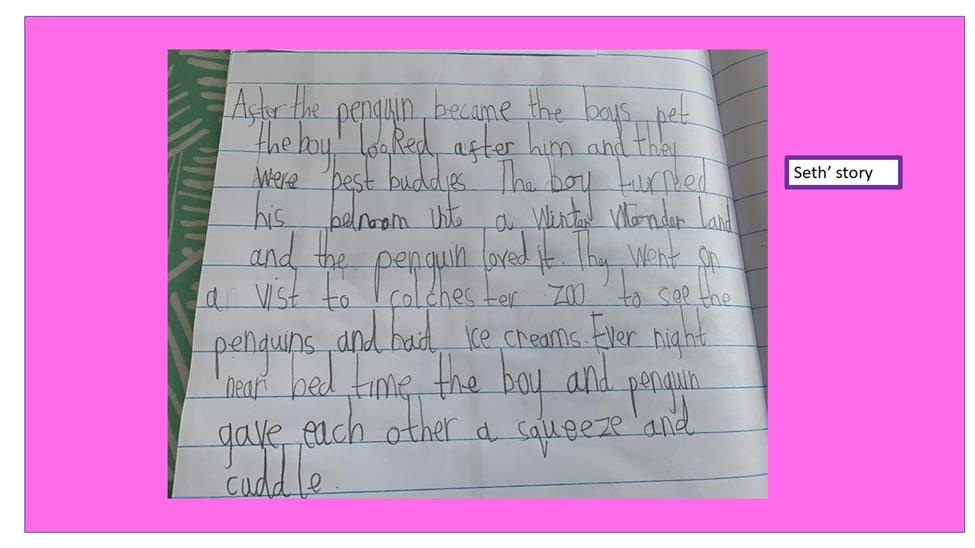 After the penguin became the boys pet
the boy looked after him and they
were best buddies. The boy turned
his bedroom into a winter wonder land
and the penguin loved it. They went on
a vist to colchester zoo to see the
penguins and had ice creams. Ever night
near bed time the boy and penguin
gave each other a squeeze and
cuddle.
Seth' story